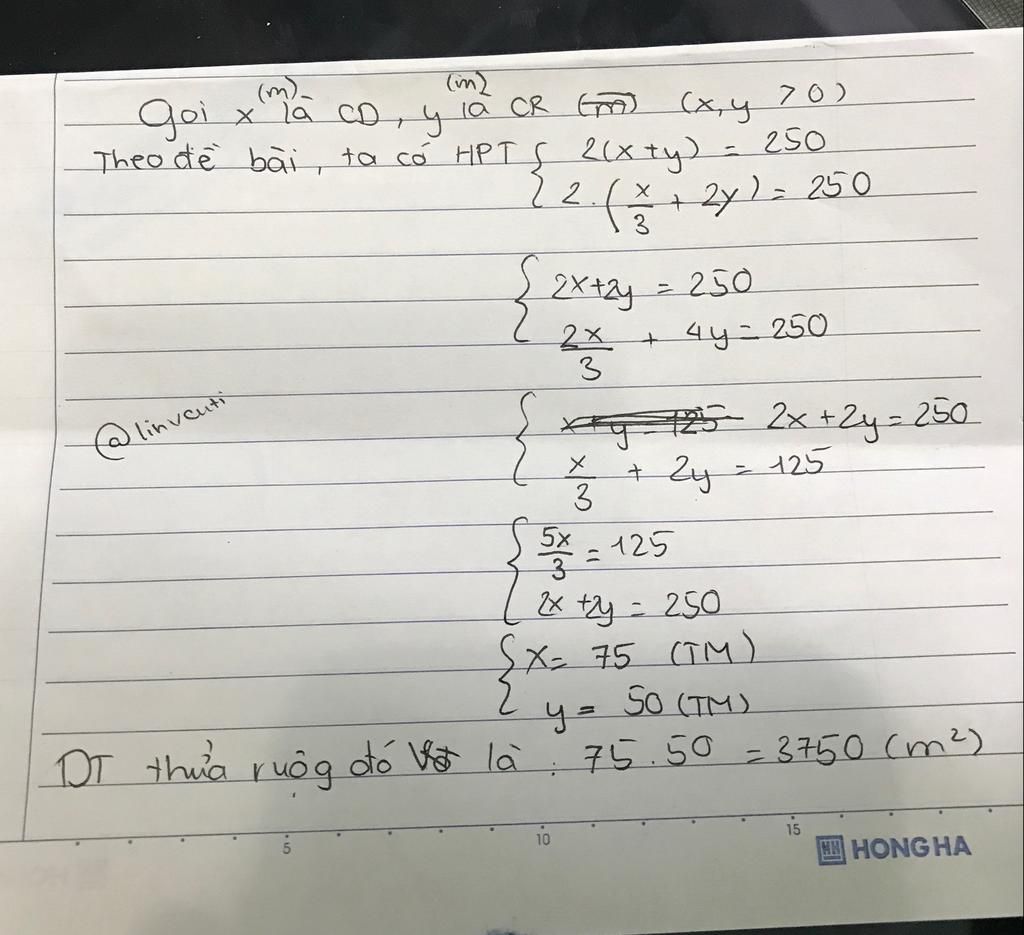 (m) (m)
Gọi x là CD, y là CR (m) (x, y > 0)
Theo đề bài, ta có HPT { 2(x+y) = 250
2.(x/3 + 2y) = 250
{ 2x+2y = 250
2x/3 + 4y = 250
{ x+y = 125 2x+2y = 250
@linvcuti
x/3 + 2y = 125
{ 5x/3 = 125
2x +2y = 250
{ x = 75 (TM)
y = 50 (TM)
DT thửa ruộg đó là : 75.50 = 3750 (m²)
5 10 15
HH HONG HA